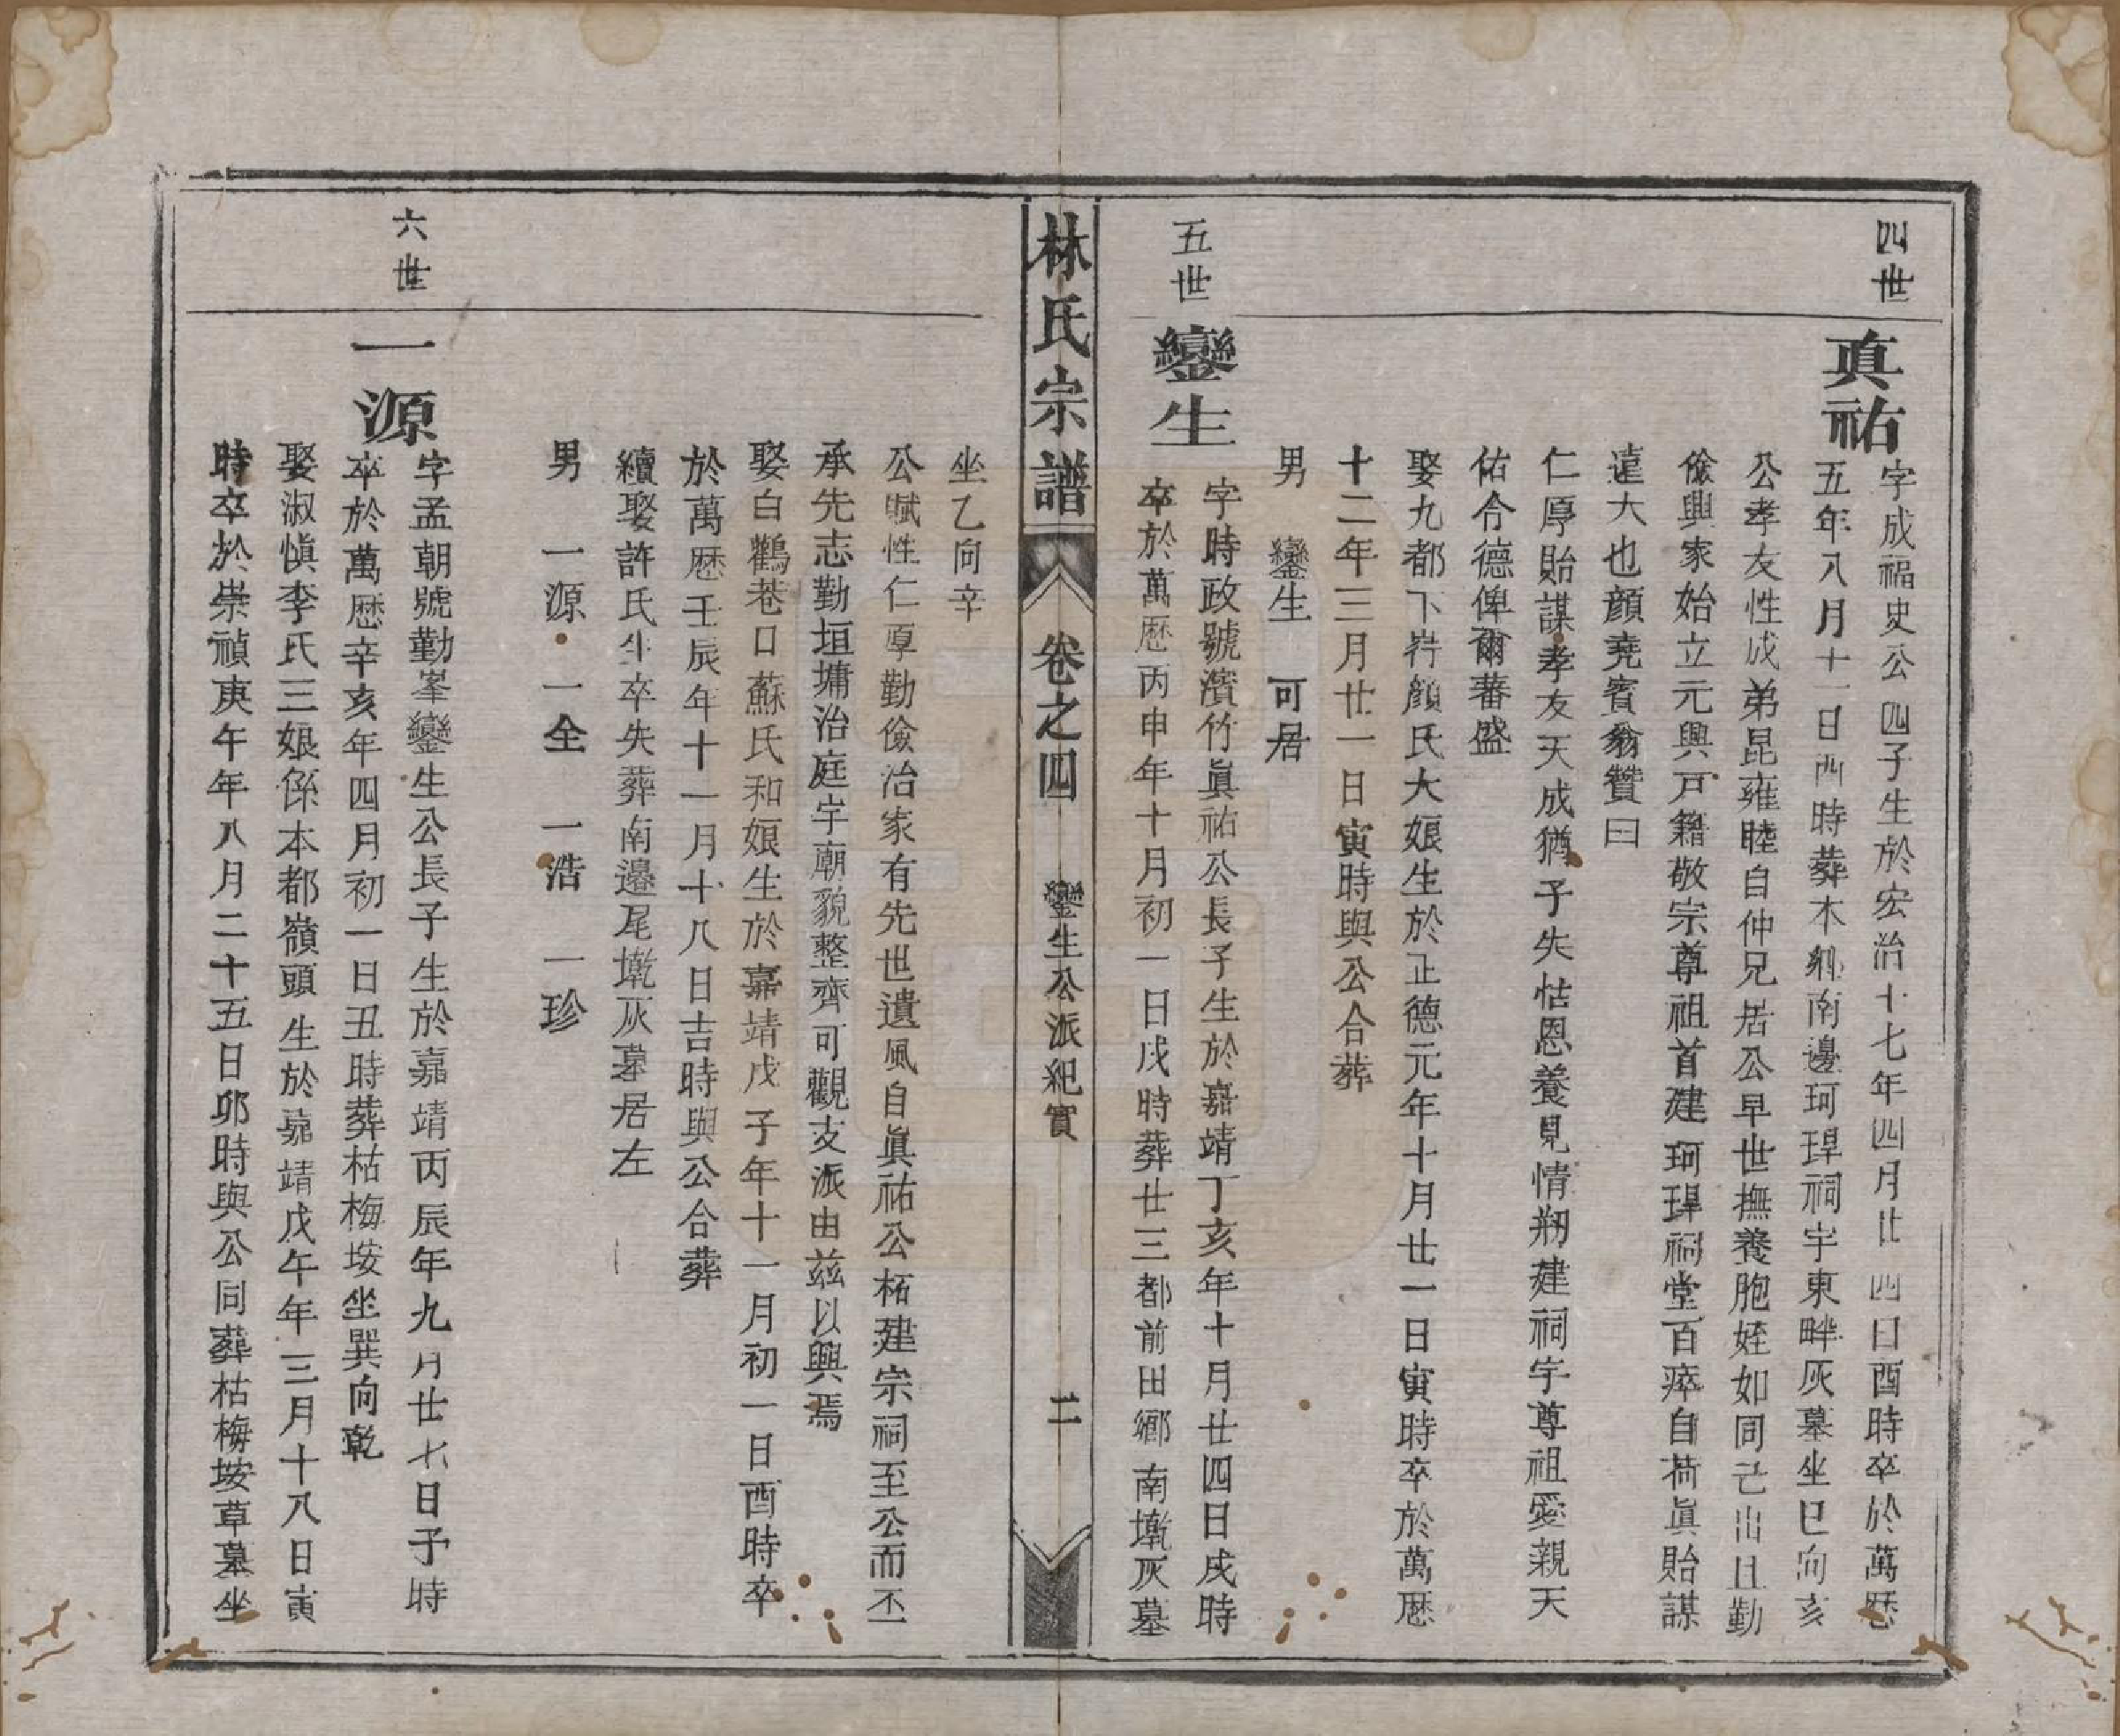 四世
真祐
字成福史公四子生於宏治十七年四月廿四日酉時卒於萬歷
五年八月十一日酉時葬本鄉南邊珂琾祠宇東畔灰墓坐巳向亥
公孝友性成弟昆雍睦自仲兄居公早世撫養胞姪如同己出且勤
儉興家始立元興戸籍敬宗尊祖首建珂琾祠堂百瘁自荷眞貽謀
遠大也顔堯賓翁贊曰
仁厚貽謀孝友天成猶子失怙恩養見情剏建祠宇尊祖愛親天
佑令德俾爾蕃盛
娶九都下幷顔氏大娘生於正德元年十月廿一日寅時卒於萬歷
十二年三月廿一日寅時與公合葬
男 鑾生 可居
五世
鑾生
字時政號濱竹眞祐公長子生於嘉靖丁亥年十月廿四日戌時
卒於萬歷丙申年十月初一日戌時葬廿三都前田鄉南墩灰墓
林氏宗譜 卷之四 鑾生公派紀實 二
坐乙向辛
公賦性仁厚勤儉治家有先世遺風自眞祐公柘建宗祠至公而丕
承先志勤垣墉治庭宇廟貌整齊可觀支派由玆以興焉
娶白鶴巷口蘇氏和娘生於嘉靖戊子年十一月初一日酉時卒
於萬歷壬辰年十一月十八日吉時與公合葬
續娶許氏生卒失葬南邊尾墩灰墓居左
男 一源 一全 一浩 一珍
六世
一源
字孟朝號勤峯鑾生公長子生於嘉靖丙辰年九月廿七日子時
卒於萬歷辛亥年四月初一日丑時葬枯梅垵坐巽向乾
娶淑愼李氏三娘係本都嶺頭生於嘉靖戊午年三月十八日寅
時卒於崇禎庚午年八月二十五日卯時與公同葬枯梅垵草墓坐